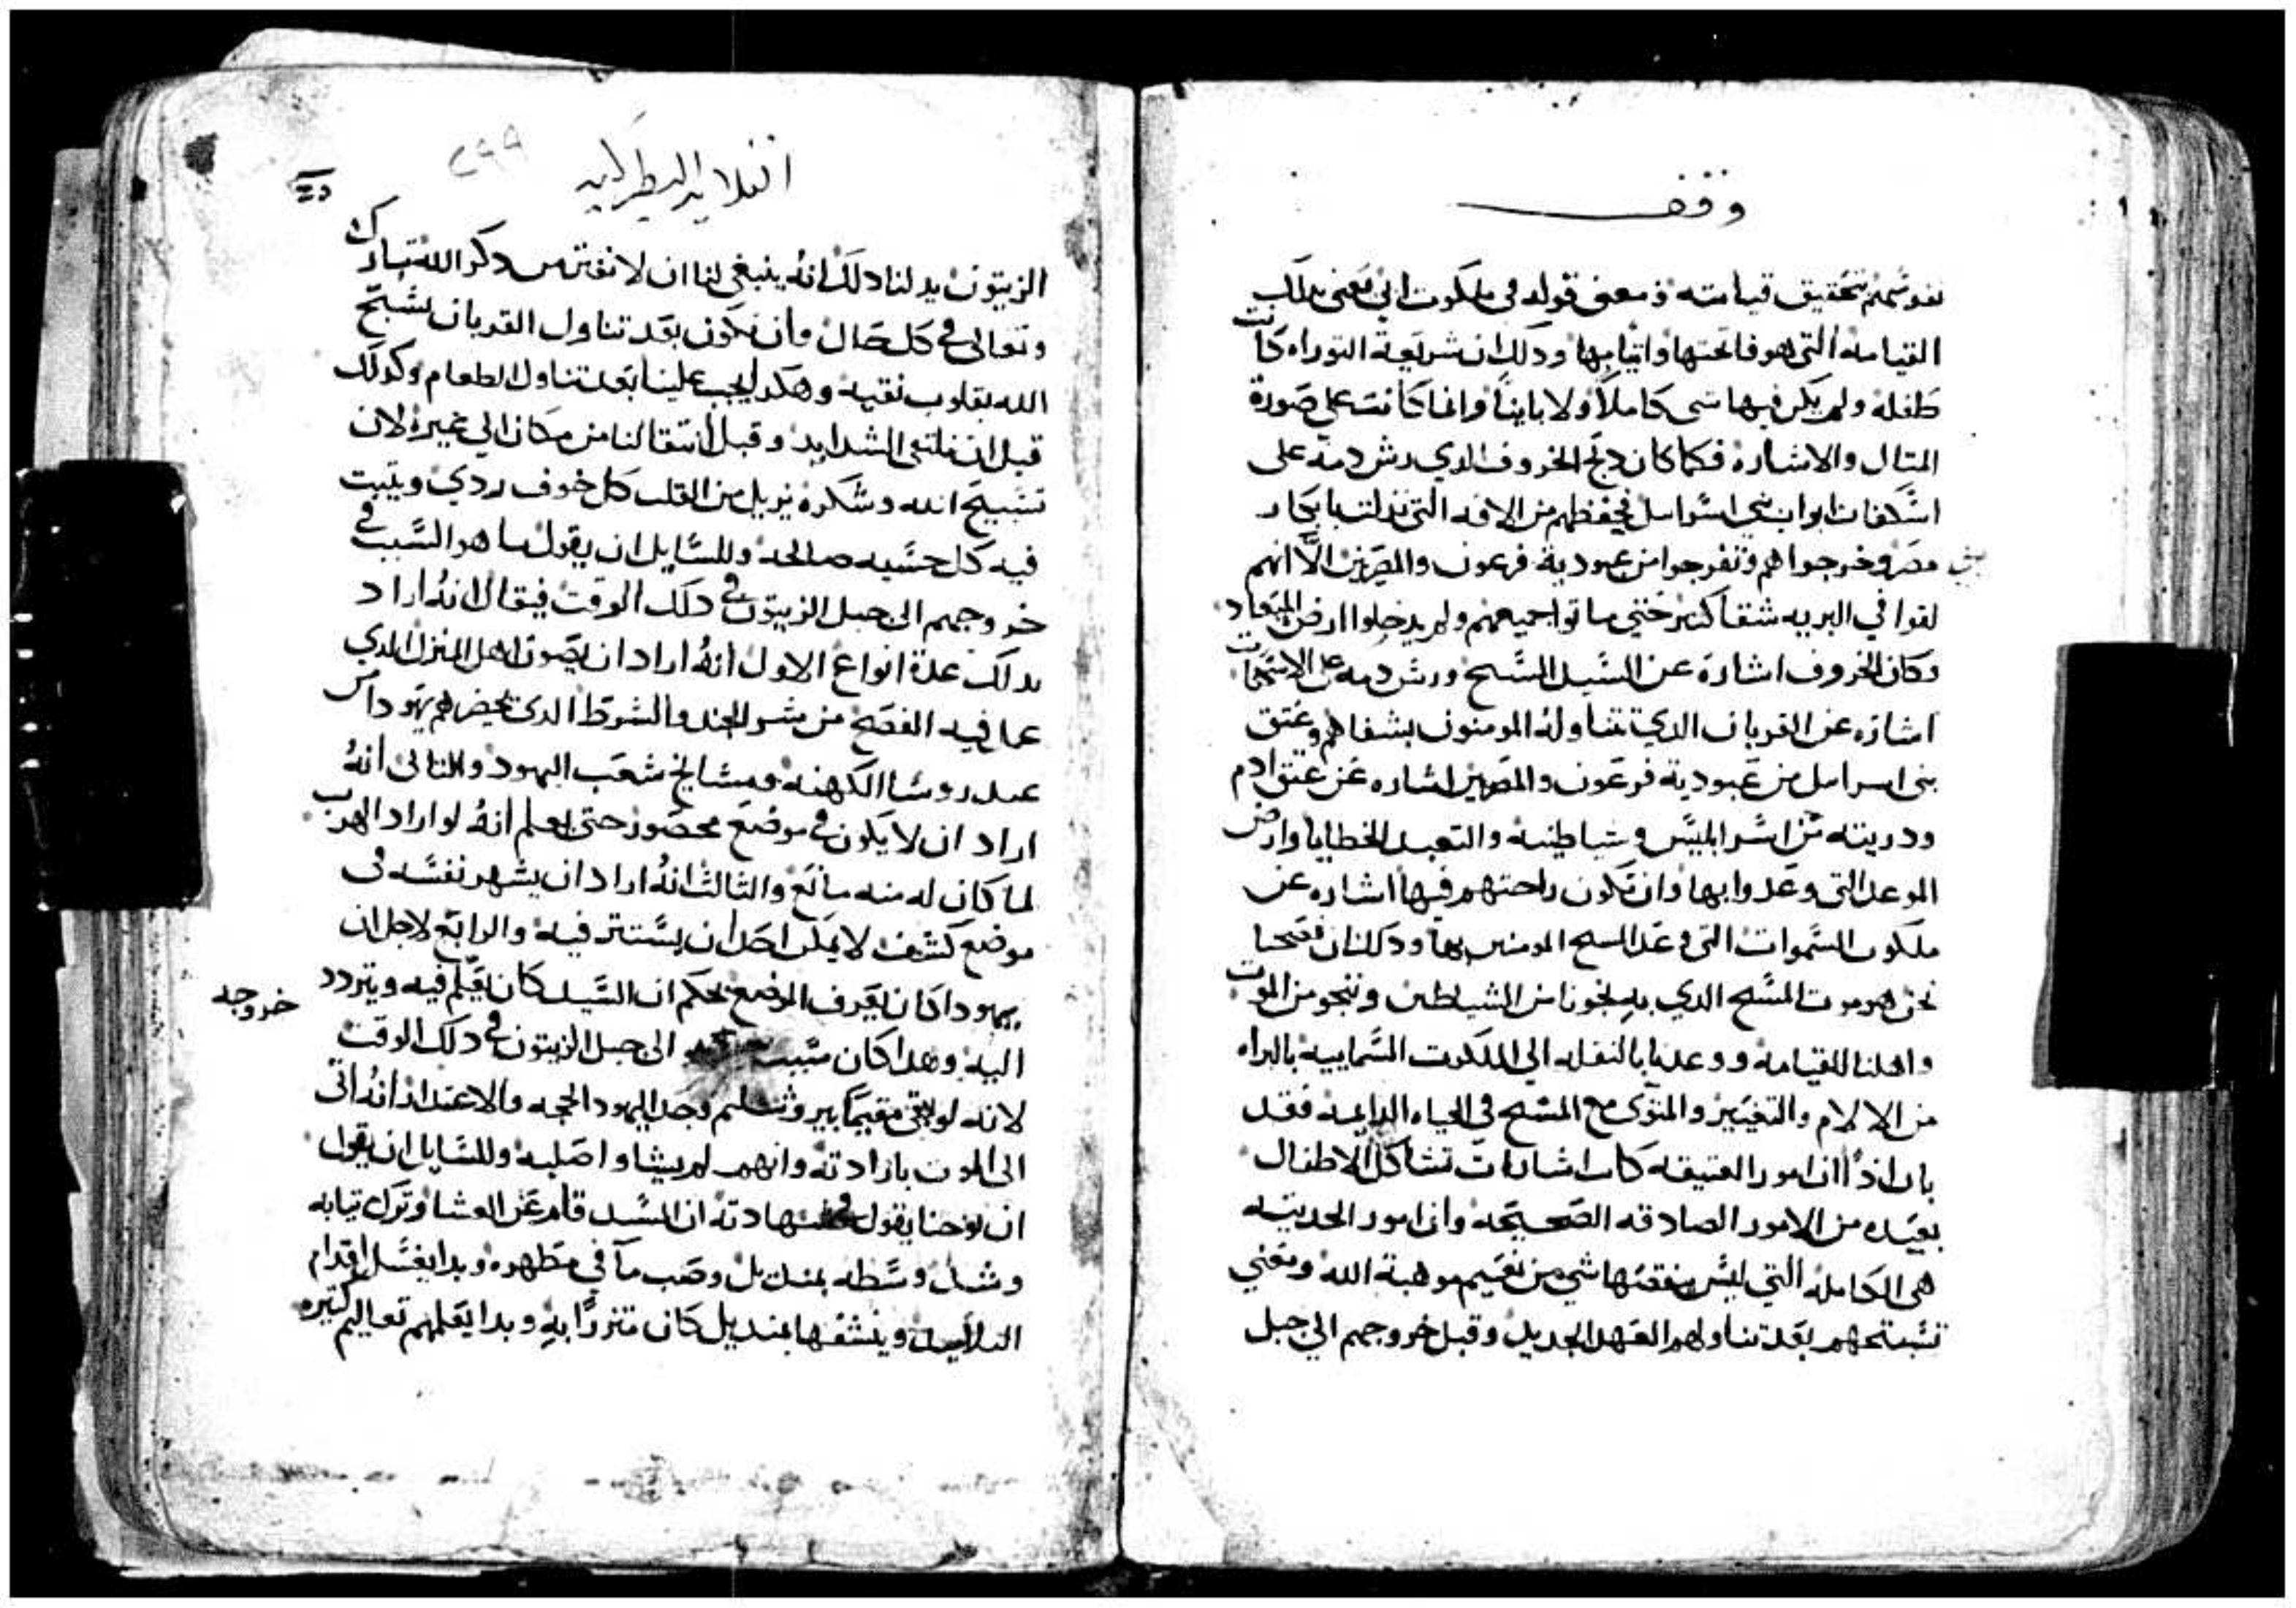 وقف
نفوسهم تحقيق قيامته ومعنى قوله في ملكوت ابي يعني بدلك
القيامه التي هو فاتحتها واتمامها ودلك ان شريعة التوراه كانت
طفله ولم يكن فيها شي كاملاً ولا بايناً وانما كانت على صورة
المتال والاشاره فكما كان دبح الخروف الدي رش دمه على
اسكفات ابواب بني اسراييل فحفظهم من الافه التي نزلت بابكار
مصر وخرجوا هم وتفرجوا من عبودية فرعون والمصريين الا انهم
لقوا في البريه شقا كتير حتى ماتوا جميعهم ولم يدخلوا ارض الميعاد
وكان الخروف اشارة عن السيد المسيح ورش دمه على الاسكفات
اشاره عن القربان الدي يتناوله المومنون بشفاههم وعتق
بني اسراييل من عبودية فرعون والمصريين اشاره عن عتق ادم
ودريته من اسر ابليس وشياطينه والتعبد للخطايا وارض
الموعد التي وعدوا بها وان تكون راحتهم فيها اشاره عن
ملكوت السموات التي وعد المسيح المومنين بها ودلك ان فصحنا
نحن هو موت المسيح الدي به نجونا من الشياطين وننجو من الموت
واهلنا للقيامه ووعدنا بالنقله الي الملكوت السماييه بالبراه
من الالام والتغيير والمتوى مع المسيح في الحياه الدايمه فقد
بان ادًا ان امور العتيقه كانت اشارات تشاكل الاطفال
بعيده من الامور الصادقه الصحيحه وان امور الحديته
هي الكامله التي ليس ينقصها شي من نعيم موهبة الله ومعني
تسبيحهم بعد تناولهم العهد الجديد وقبل خروجهم الي جبل
القلايه البطركيه
٢٩٩
الزيتون يدلنا دلك انه ينبغي لنا ان لا نفتر من دكر الله تبارك
وتعالى في كل حال وان نكون بعد تناول القربان نسبح
الله بقلوب نقيه وهكدا يجب علينا بعد تناول الطعام وكدلك
قبل ان نلتقي الشدايد وقبل انتقالنا من مكان الي غيره لان
تسبيح الله وشكره يزيل من القلب كل خوف ردي ويتبت
فيه كل خشيه صالحه وللسايل ان يقول ما هو السبب في
خروجهم الى جبل الزيتون في دلك الوقت فيقال انه اراد
بدلك عدة انواع الاول انه اراد ان يصون اهل المنزل الدي
عمل فيه الفصح من شر الجند والشرط الدي يحضرهم يهوداس
عبد روسا الكهنه ومشايخ شعب اليهود والتاني انه
اراد ان لا يكون في موضع محصور حتى يعلم انه لو اراد الهرب
لما كان له منه مانع والتالت انه اراد ان يشهر نفسه في
موضع كشف لا يمكن احد ان يستتر فيه والرابع لاجل ان
يهودا كان يعرف الموضع بحكم ان السيد كان يعلم فيه ويتردد
اليه وهدا كان سبب خروجه الى جبل الزيتون في دلك الوقت
لانه لو بقي مقيماً بيروشليم وجد اليهود الحجه والاعتدار انه اتى
الى الموت بارادته وانهم لم يشاوا صلبه وللسايل ان يقول
ان يوحنا يقول في شهادته ان السيد قام عن العشا وترك تيابه
وشد وسطه بمنديل وصب ما في مطهره وبدا يغسل اقدام
التلاميد وينشفها بمنديل كان متزرًا به وبدا يعلمهم تعاليم كتيره